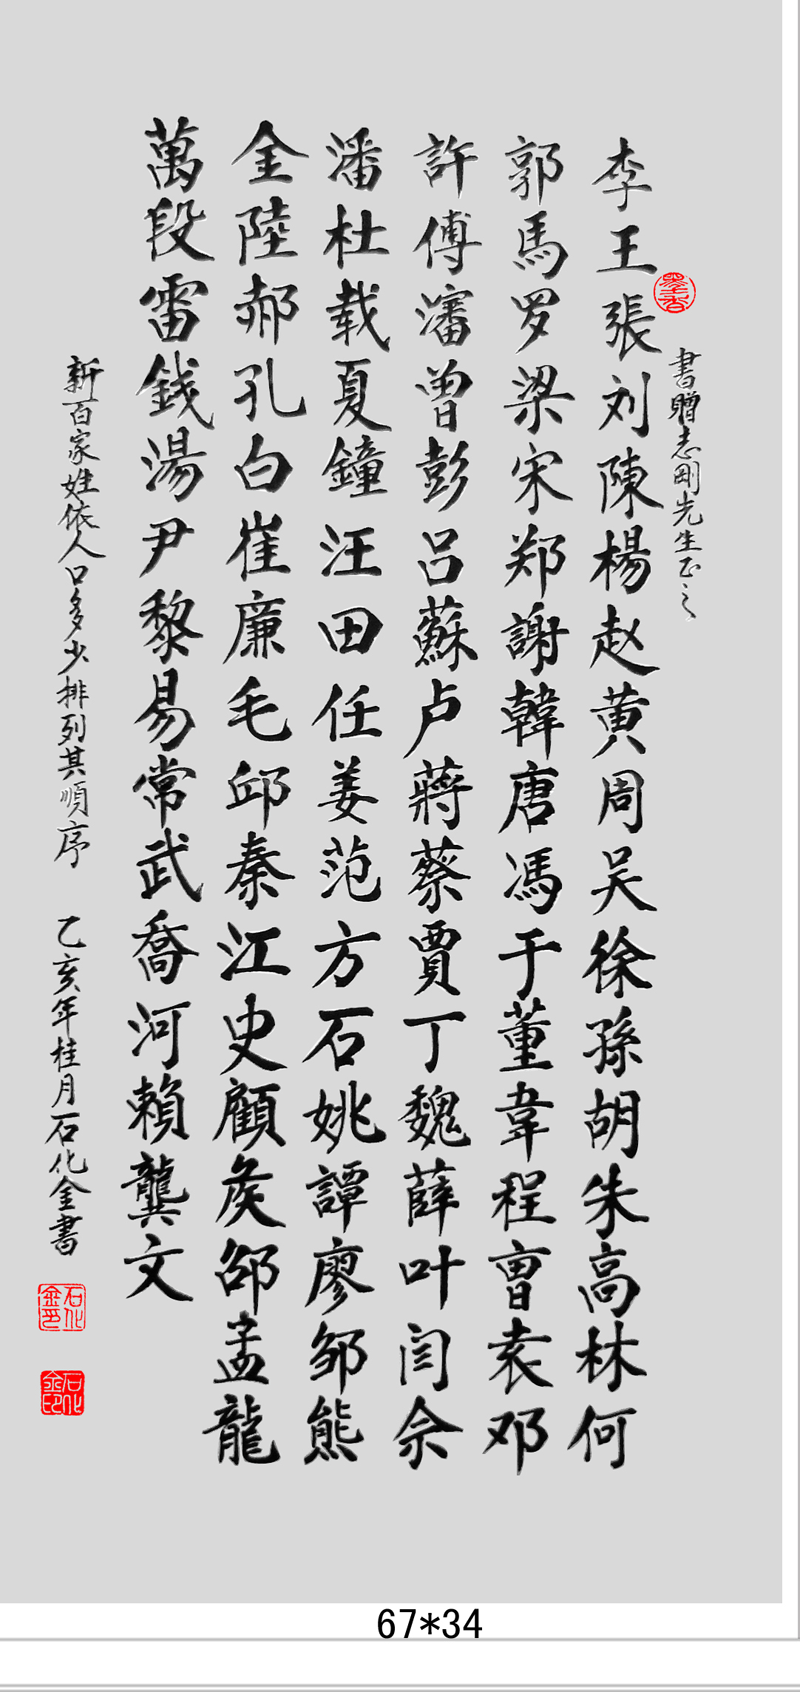 墨香
書贈志剛先生正之
李王張刘陳楊赵黄周吴徐孫胡朱高林何
郭馬罗梁宋郑謝韓唐馮于董韋程曹袁邓
許傅瀋曾彭吕蘇卢蔣蔡賈丁魏薛叶闫佘
潘杜载夏鐘汪田任姜范方石姚譚廖邹熊
金陸郝孔白崔廉毛邱秦江史顧矦邵孟龍
萬段雷錢湯尹黎易常武喬河賴龔文
新百家姓依人口多少排列其順序 乙亥年桂月石化金書
石化金印
石化金印
67*34